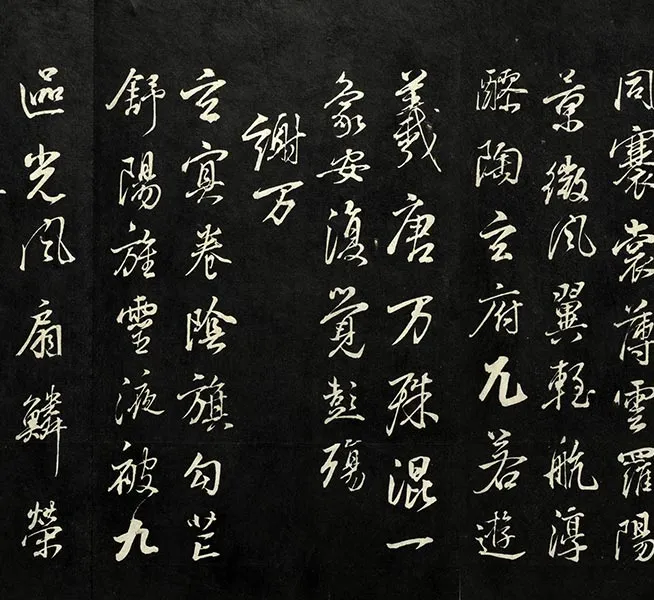 同褰裳薄雲羅陽
景微風翼輕航淳
醪陶玄府兀若遊
羲唐万殊混一
象安復覺彭殤
謝万
玄冥卷陰旗勾芒
舒陽旌靈液被九
區光風扇鱗榮